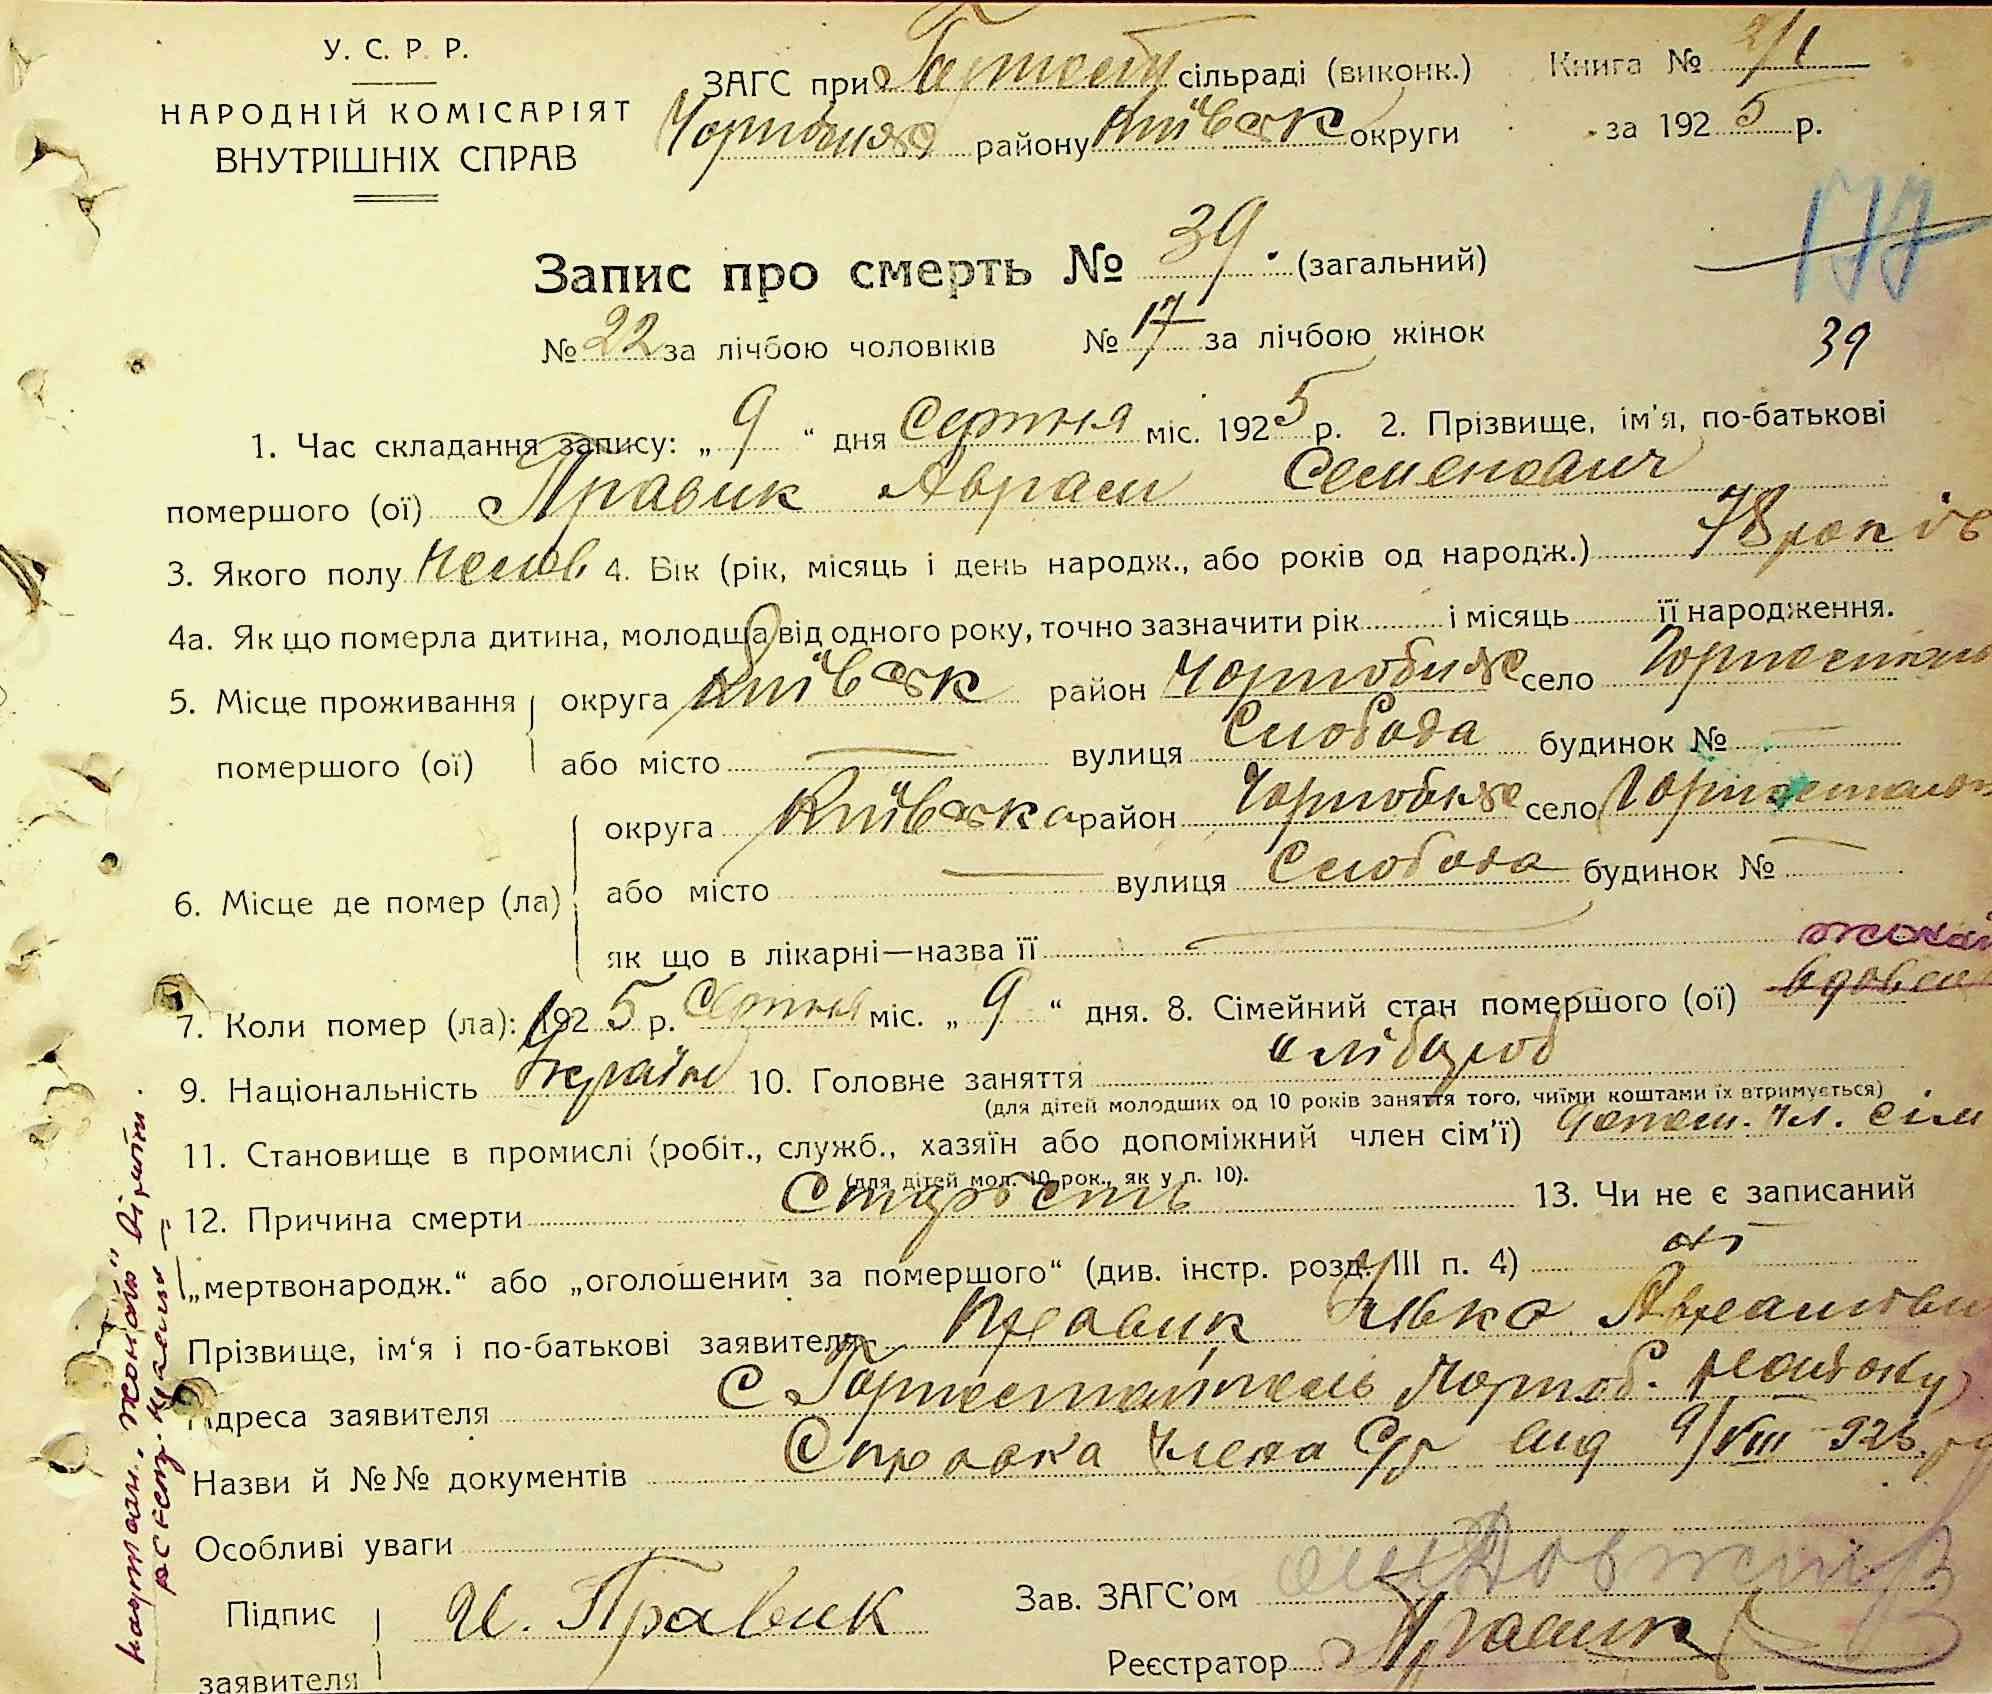 У. С. Р. Р.
НАРОДНІЙ КОМІСАРІЯТ
ВНУТРІШНІХ СПРАВ
ЗАГС при сільраді (виконк.) Книга № 2/1
району Київськ округи за 1925 р.
177
Запис про смерть № 39 (загальний)
№ 22 за лічбою чоловіків № 17 за лічбою жінок
39
1. Час складання запису: „ 9 “ дня Серпня міс. 1925 р. 2. Прізвище, ім'я, по-батькові
помершого (ої) Правик Аврам Семенович
3. Якого полу 4. Вік (рік, місяць і день народж., або років од народж.) 78 років
4а. Як що померла дитина, молодша від одного року, точно зазначити рік і місяць її народження.
5. Місце проживання помершого (ої)
округа Київськ район Чорнобильс село
або місто — вулиця Слобода будинок № —
6. Місце де помер (ла)
округа Київська район Чорнобильс село
або місто — вулиця Слобода будинок № —
як що в лікарні—назва її —
жонат
7. Коли помер (ла): 1925 р. Серпня міс. „ 9 “ дня. 8. Сімейний стан помершого (ої) вдовец
9. Національність Україн 10. Головне заняття хлібороб
(для дітей молодших од 10 років заняття того, чиїми коштами їх втримується)
11. Становище в промислі (робіт., служб., хазяїн або допоміжний член сім'ї) допом. чл. сім
(для дітей мол. 10 рок., як у п. 10).
12. Причина смерти Старость 13. Чи не є записаний
„мертвонародж.“ або „оголошеним за помершого“ (див. інстр. розд. III п. 4) ні
Прізвище, ім'я і по-батькові заявителя Правик Ілько
Адреса заявителя с Горностайпель Чорноб. району
Назви й №№ документів Справка члена С/р від 9/VIII 925 р
Особливі уваги
Підпис заявителя И. Правик
Зав. ЗАГС'ом
Реєстратор
"жонат" вірити.